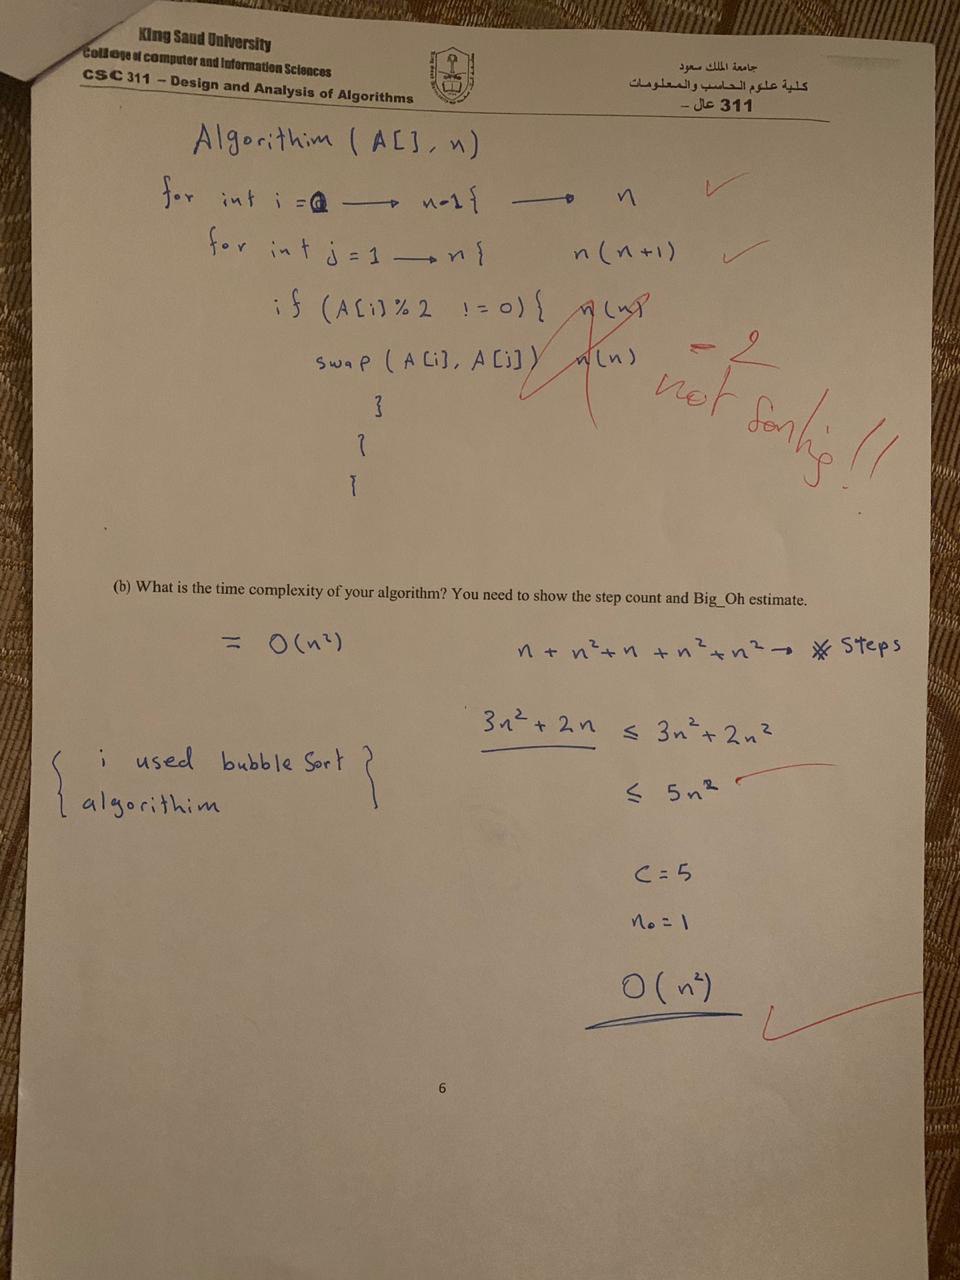 King Saud University
College of computer and Information Sciences
CSC 311 – Design and Analysis of Algorithms
جامعة الملك سعود
كلية علوم الحاسب والمعلومات
311 عال –
Algorithim ( A[], n)
for int i = 0 → n-1 { → n ✓
for int j = 1 → n { n(n+1) ✓
if (A[i] % 2 != 0) { n(n)
swap ( A[i], A[j]) n(n)
}
}
}
- 2
not sorting !!
(b) What is the time complexity of your algorithm? You need to show the step count and Big_Oh estimate.
= O(n²)
n + n² + n + n² + n² → # Steps
3n² + 2n ≤ 3n² + 2n²
≤ 5n²
{ i used bubble sort
algorithim }
C = 5
n₀ = 1
O(n²) ✓
6